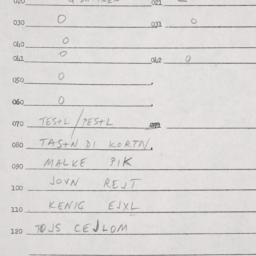 030 0 031 0
040 0
041 0 042 0
050 0
060 0
070 TEStL/PEStL
080 TAStN DI KORTN.
090 MALKE PIK
100 JOVN REJT
110 KENIG EJXL
120 TOJS CEJLOM